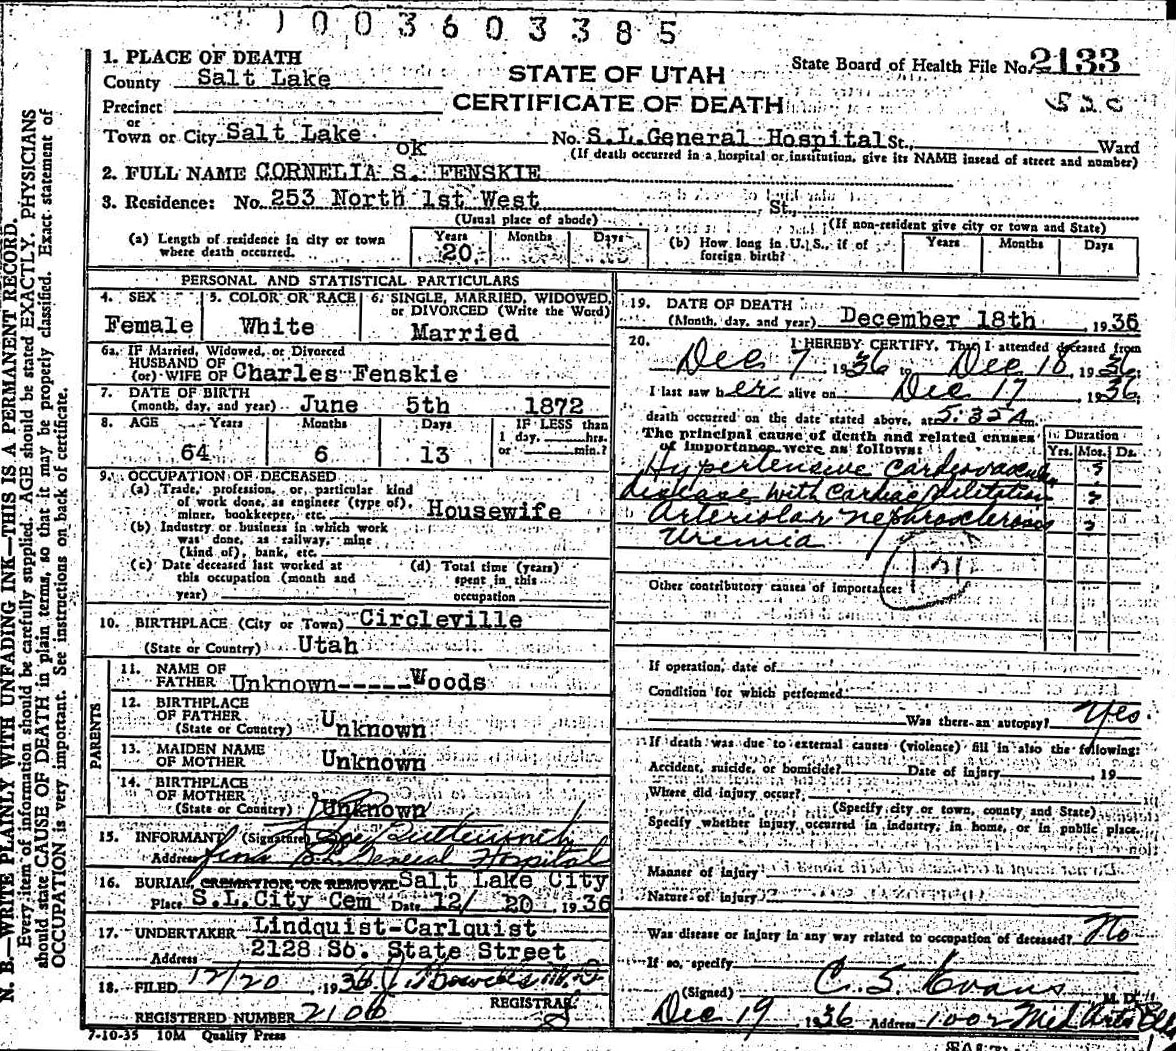 1003603385
1. PLACE OF DEATH
County Salt Lake
STATE OF UTAH
State Board of Health File No. 2133
Precinct
CERTIFICATE OF DEATH
or
Town or City Salt Lake No. S.L.General Hospital St., Ward
ok
(If death occurred in a hospital or institution, give its NAME instead of street and number)
2. FULL NAME CORNELIA S. FENSKIE
3. Residence: No. 253 North 1st West St.,
(Usual place of abode) (If non-resident give city or town and State)
(a) Length of residence in city or town where death occurred. Years 20 Months Days
(b) How long in U. S., if of foreign birth? Years Months Days
PERSONAL AND STATISTICAL PARTICULARS
4. SEX Female
5. COLOR OR RACE White
6. SINGLE, MARRIED, WIDOWED, or DIVORCED (Write the Word) Married
6a. IF Married, Widowed, or Divorced
HUSBAND OF
(or) WIFE OF Charles Fenskie
7. DATE OF BIRTH
(month, day, and year) June 5th 1872
8. AGE Years Months Days IF LESS than
1 day, hrs.
or min.?
64 6 13
9. OCCUPATION OF DECEASED
(a) Trade, profession, or, particular kind
of work done, as engineer (type of),
miner, bookkeeper, etc. Housewife
(b) Industry or business in which work
was done, as railway, mine
(kind of), bank, etc.
(c) Date deceased last worked at
this occupation (month and
year)
(d) Total time (years)
spent in this
occupation
10. BIRTHPLACE (City or Town) Circleville
(State or Country) Utah
PARENTS
11. NAME OF
FATHER Unknown-----Woods
12. BIRTHPLACE
OF FATHER
(State or Country) Unknown
13. MAIDEN NAME
OF MOTHER Unknown
14. BIRTHPLACE
OF MOTHER
(State or Country) Unknown
15. INFORMANT (Signature)
Address S.L. General Hospital
16. BURIAL, CREMATION, OR REMOVAL Salt Lake City
Place S.L.City Cem Date 12/ 20 1936
17. UNDERTAKER Lindquist-Carlquist
Address 2128 So. State Street
18. FILED 12/20 1936
REGISTRAR
REGISTERED NUMBER 2100
7-10-35 10M Quality Press
19. DATE OF DEATH
(Month, day, and year) December 18th, 1936
20. I HEREBY CERTIFY, That I attended deceased from
Dec 7 1936 to Dec 18 1936
I last saw her alive on Dec 17 1936
death occurred on the date stated above, at 5:35 A m.
The principal cause of death and related causes
of importance were as follows:
Duration
Yrs. Mos. Ds.
Hypertensive Cardiovascular
disease with Cardiac Dilitation
Arteriolar nephrosclerosis
Uremia
131
Other contributory causes of importance:
If operation, date of
Condition for which performed
Was there an autopsy? Yes
If death was due to external causes (violence) fill in also the following:
Accident, suicide, or homicide? Date of injury 19
Where did injury occur?
(Specify city or town, county, and State)
Specify whether injury occurred in industry, in home, or in public place.
Manner of injury
Nature of injury
Was disease or injury in any way related to occupation of deceased? No
If so, specify
(Signed) C. S. Evans M. D.
Dec 19 1936 Address 1002 Med Arts Bldg
N. B.—WRITE PLAINLY WITH UNFADING INK—THIS IS A PERMANENT RECORD.
Every item of information should be carefully supplied. AGE should be stated EXACTLY. PHYSICIANS
should state CAUSE OF DEATH in plain terms, so that it may be properly classified. Exact statement of
OCCUPATION is very important. See instructions on back of certificate.